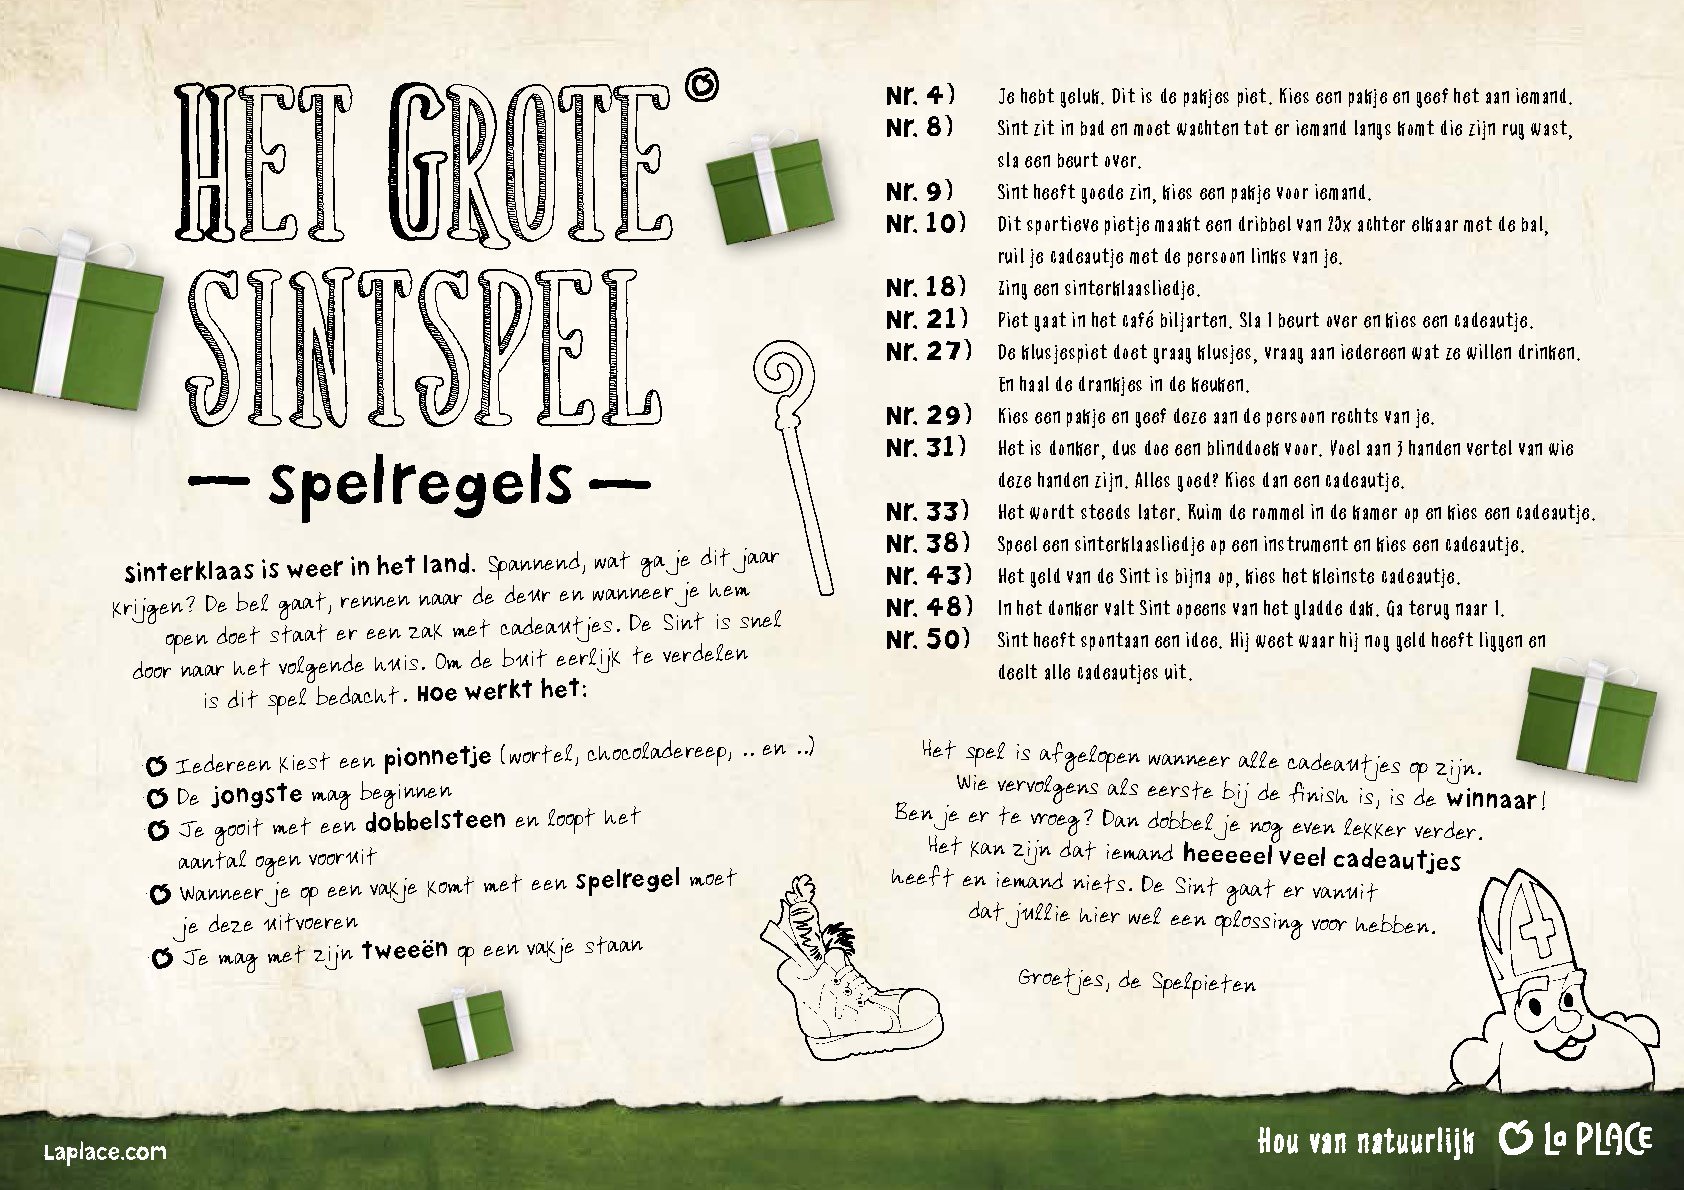 HET GROTE
SINTSPEL
— spelregels —
Sinterklaas is weer in het land. Spannend, wat ga je dit jaar
krijgen? De bel gaat, rennen naar de deur en wanneer je hem
open doet staat er een zak met cadeautjes. De Sint is snel
door naar het volgende huis. Om de buit eerlijk te verdelen
is dit spel bedacht. Hoe werkt het:
Iedereen kiest een pionnetje (wortel, chocoladereep, .. en ..)
De jongste mag beginnen
Je gooit met een dobbelsteen en loopt het
aantal ogen vooruit
Wanneer je op een vakje komt met een spelregel moet
je deze uitvoeren
Je mag met zijn tweeën op een vakje staan
Nr. 4) Je hebt geluk. Dit is de pakjes piet. Kies een pakje en geef het aan iemand.
Nr. 8) Sint zit in bad en moet wachten tot er iemand langs komt die zijn rug wast,
sla een beurt over.
Nr. 9) Sint heeft goede zin, kies een pakje voor iemand.
Nr. 10) Dit sportieve pietje maakt een dribbel van 25x achter elkaar met de bal,
ruil je cadeautje met de persoon links van je.
Nr. 18) Zing een sinterklaasliedje.
Nr. 21) Piet gaat in het café biljarten. Sla 1 beurt over en kies een cadeautje.
Nr. 27) De klusjespiet doet graag klusjes, vraag aan iedereen wat ze willen drinken.
En haal de drankjes in de keuken.
Nr. 29) Kies een pakje en geef deze aan de persoon rechts van je.
Nr. 31) Het is donker, dus doe een blinddoek voor. Voel aan 3 handen vertel van wie
deze handen zijn. Alles goed? Kies dan een cadeautje.
Nr. 33) Het wordt steeds later. Ruim de rommel in de kamer op en kies een cadeautje.
Nr. 38) Speel een sinterklaasliedje op een instrument en kies een cadeautje.
Nr. 43) Het geld van de Sint is bijna op, kies het kleinste cadeautje.
Nr. 48) In het donker valt Sint opeens van het gladde dak. Ga terug naar 1.
Nr. 50) Sint heeft spontaan een idee. Hij weet waar hij nog geld heeft liggen en
deelt alle cadeautjes uit.
Het spel is afgelopen wanneer alle cadeautjes op zijn.
Wie vervolgens als eerste bij de finish is, is de winnaar!
Ben je er te vroeg? Dan dobbel je nog even lekker verder.
Het kan zijn dat iemand heeeeel veel cadeautjes
heeft en iemand niets. De Sint gaat er vanuit
dat jullie hier wel een oplossing voor hebben.
Groetjes, de Spelpieten
Laplace.com
Hou van natuurlijk La PLACE